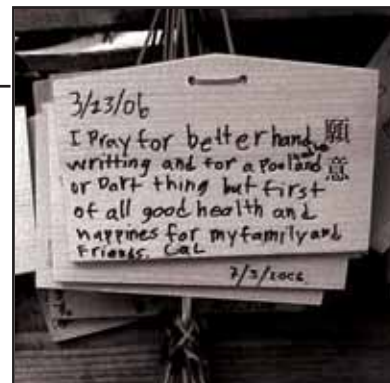 3/23/06
I Pray for better hand
writting and for a Pool and
or Dart thing but first
of all good health and
happines for my family and
Friends. Cal
願
意
7/3/2006